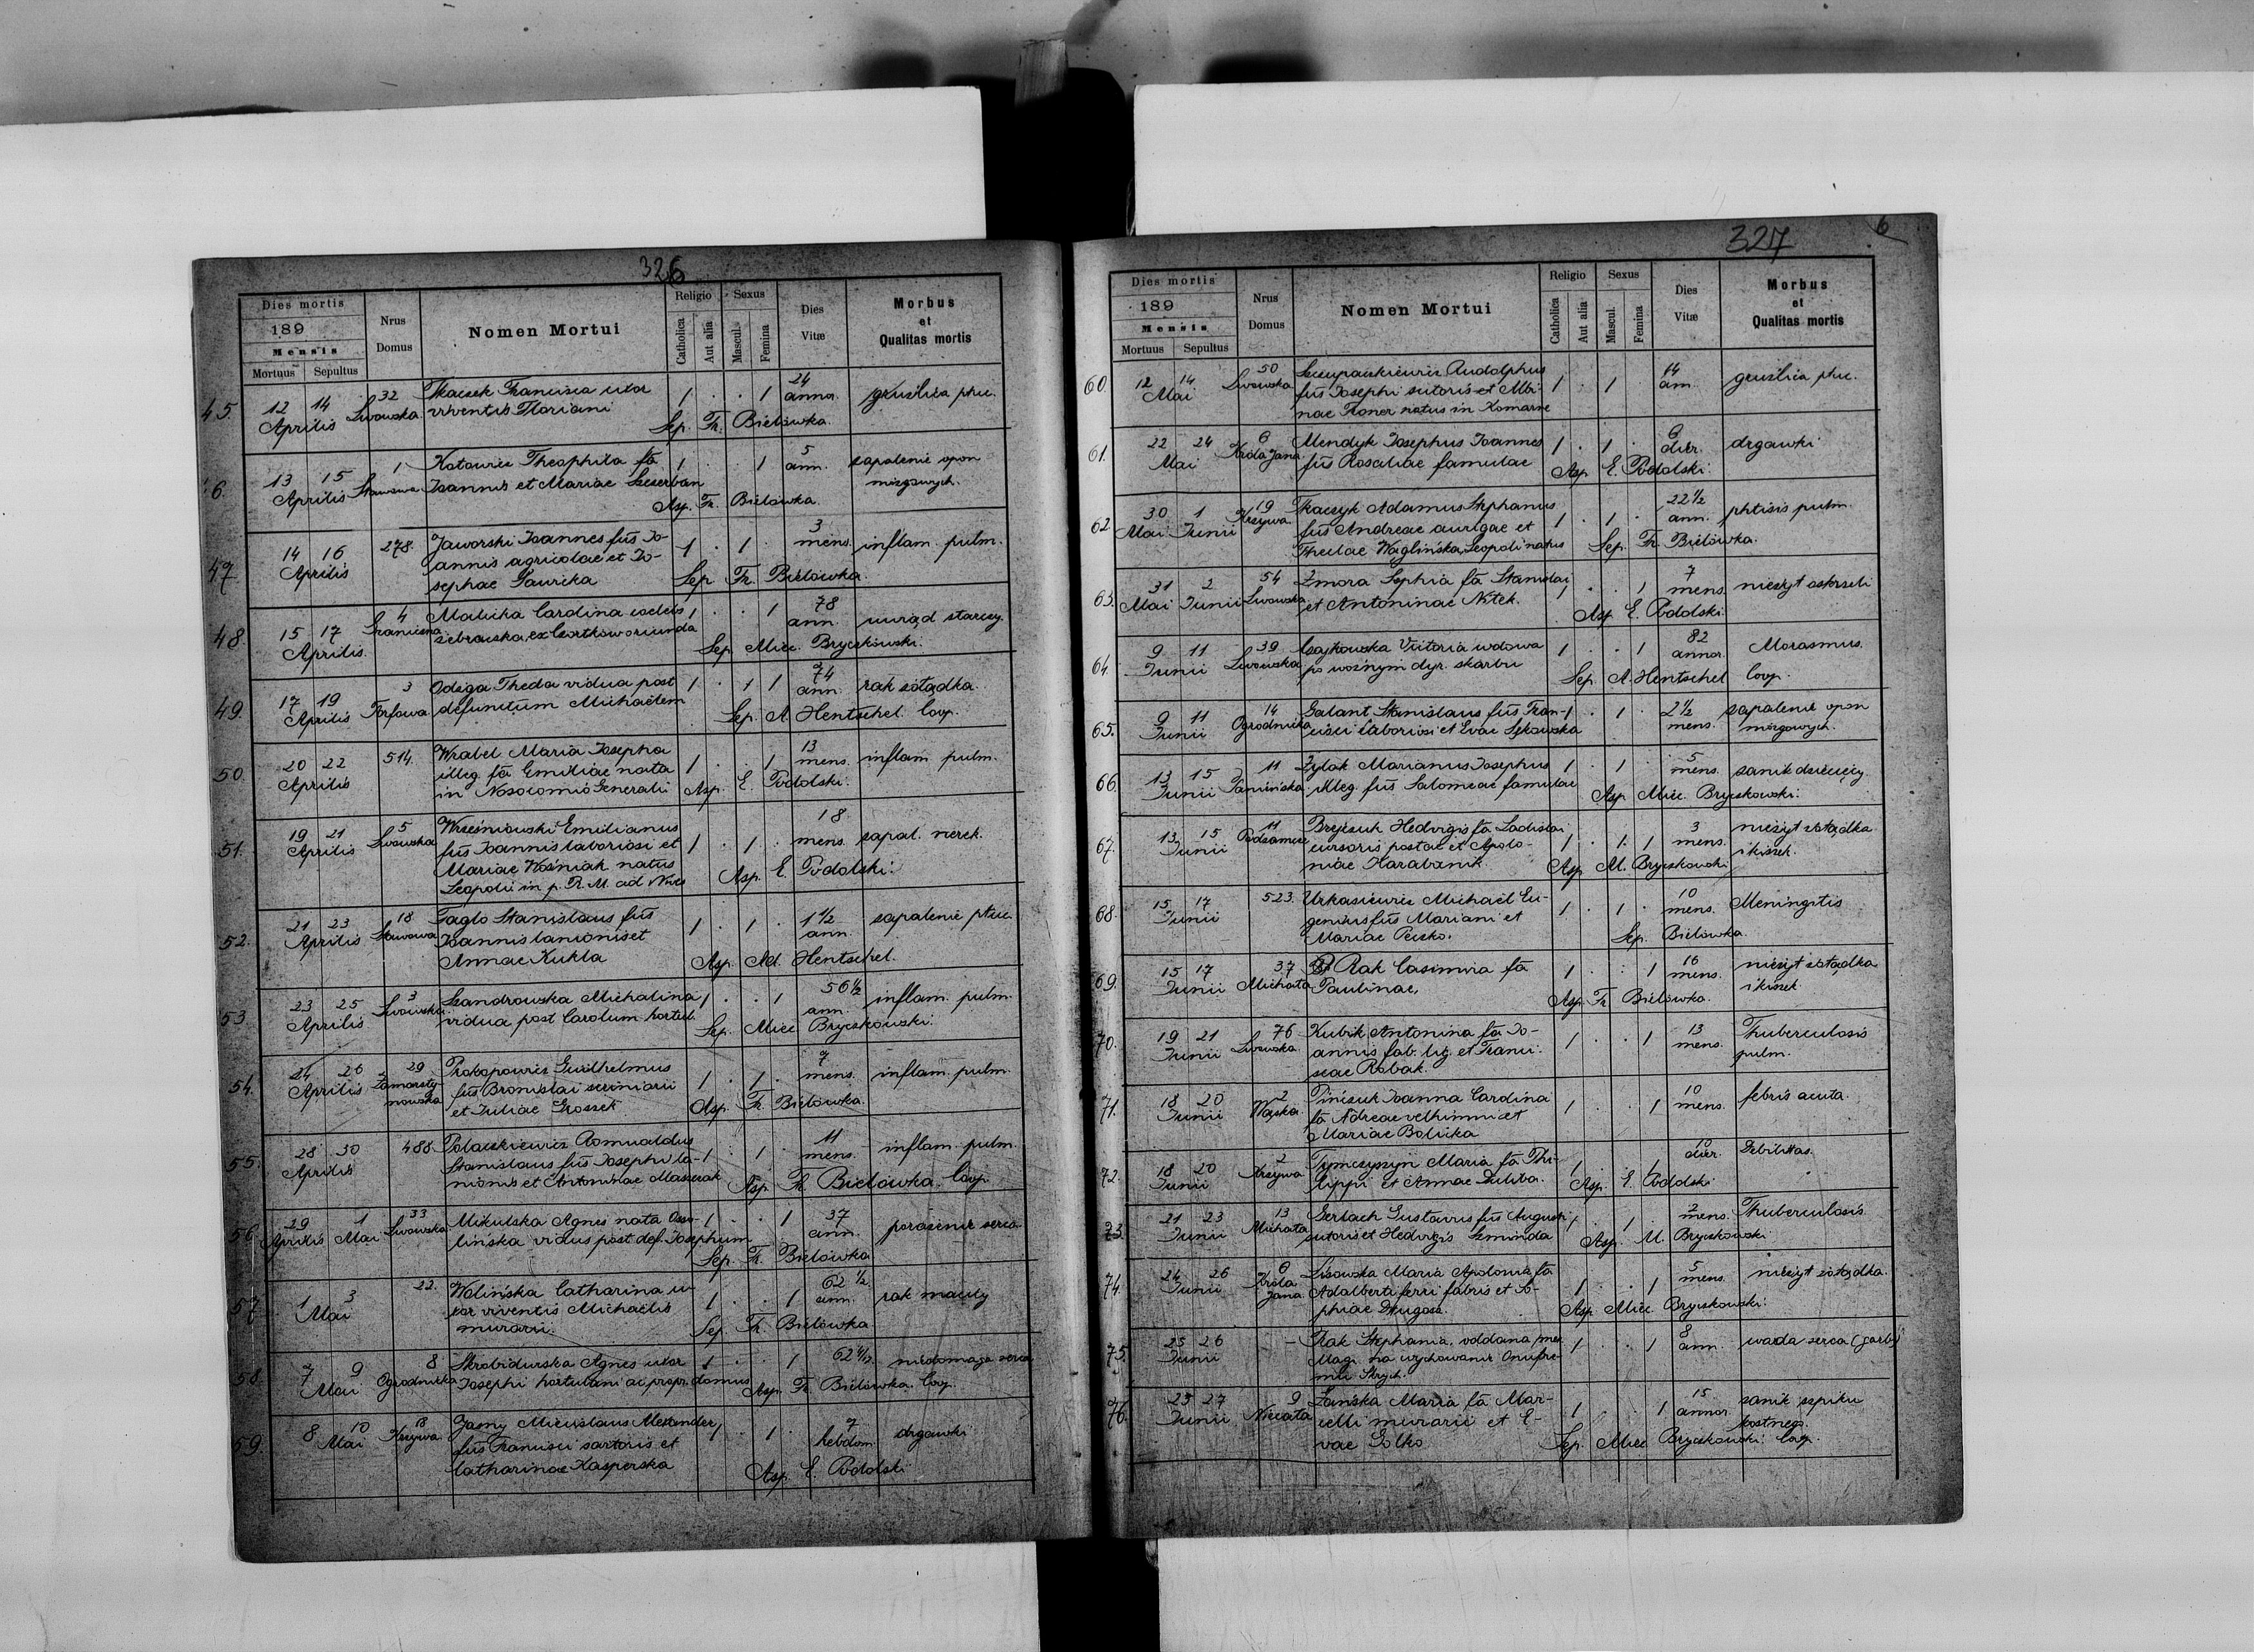 326
Dies mortis
189
Mensis
Mortuus Sepultus
Nrus Domus
Nomen Mortui
Religio
Catholica Aut alia
Sexus
Mascul. Femina
Dies Vitæ
Morbus et Qualitas mortis
45. 12 14 Aprilis 32 Lwowska Tkaczek Francisca uxor 1 . . 1 24 annor. gruźlica płuc.
viventis Floriani
Sep. Fr. Bielówka.
13 15 Aprilis 1 Stawowa Kotowicz Theophila fa 1 . . 1 5 ann. zapalenie opon
Ioannis et Mariae Szczerban mózgowych.
Asp. Fr. Bielówka
47. 14 16 Aprilis 278. Jaworski Ioannes fus Io- 1 . 1 . 3 mens. inflam. pulm.
annis agricolae et Jo-
sephae Gawrika
Sep. Fr. Bielówka.
48. 15 17 Aprilis. 4 Malicka Carolina coelebs 1 . . 1 78 ann. uwiąd starczy.
żebraczka, ex Czortków oriunda
Sep. Miec. Bryczkowski.
49. 17 19 Aprilis 3 Torfowa Odziga Thecla vidua post 1 . 1 1 74 ann. rak żołądka.
defunctum Michaelem
Sep. A. Hentschel. Coop.
50. 20 22 Aprilis 514. Wrabel Maria Josepha 1 . . 1 13 mens. inflam. pulm.
illeg. fa Emiliae nata
in Nosocomio Generali
Asp. E. Podolski.
51. 19 21 Aprilis 5 Lwowska Wrześniowski Emilianus 1 . 1 . 18 mens. zapal. nerek.
fus Ioannis laboriosi et
Mariae Woźniak natus
Leopoli in p. R. M. ad Nives
Asp. E. Podolski.
52. 21 23 Aprilis 18 Stawowa Taglo Stanislaus fus 1 . 1 . 1 1/2 ann. zapalenie płuc
Ioannis lanionis et
Annae Kukla
Asp. Ad. Hentschel.
53 23 25 Aprilis 3 Lwowska Szandrowska Michalina 1 . . 1 56 1/2 ann. inflam. pulm.
vidua post Carolum hortul.
Sep. Miec. Bryczkowski.
54. 24 26 Aprilis 29 Zamarsty-
nowska Prokopowicz Guilhelmus 1 . 1 . 7 mens. inflam. pulm.
fus Bronislai scriniarii
et Juliae Grossek
Asp. Fr. Bielówka.
55. 28 30 Aprilis 488. Polaczkiewicz Romualdus 1 . 1 . 11 mens. inflam. pulm.
Stanislaus fus Josephi la-
nionis et Antoninae Masserak
Asp. Fr. Bielówka. Coop.
56 29 Aprilis 1 Mai 33 Lwowska Mikulska Agnes nata Osso- 1 . . 1 37 ann. porażenie serca
lińska vidua post def. Josephum
Sep. Fr. Bielówka
57. 1 3 Mai 22. Wolińska Catharina u- 1 . . 1 62 1/2 ann. rak macicy
xor viventis Michaelis
murarii.
Sep. Fr. Bielówka
58. 7 9 Mai 8 Ogrodnicka Skrobidurska Agnes uxor 1 . . 1 62 4/12 niedomaga serca
Josephi hortulani ac propr. domus
Asp. Fr. Bielówka. Coop.
59. 8 10 Mai 18 Krzywa. Jasny Miecislaus Alexander 1 . 1 . 7 hebdom. drgawki
fus Francisci sartoris et
Catharinae Kasperska
Asp. E. Podolski
327
6
Dies mortis
189
Mensis
Mortuus Sepultus
Nrus Domus
Nomen Mortui
Religio
Catholica Aut alia
Sexus
Mascul. Femina
Dies Vitæ
Morbus et Qualitas mortis
60. 12 14 Mai 50 Lwowska Szczupaczkiewicz Rudolphus 1 . 1 . 14 ann. gruźlica płuc.
fus Josephi sutoris et Albi-
nae Troner natus in Komarne
61. 22 24 Mai 6 Króla Jana Mendyk Josephus Ioannes 1 . 1 . 6 dier. drgawki
fus Rosaliae famulae
Asp. E. Podolski
62. 30 Mai 1 Junii 19 Krzywa. Tkaczyk Adamus Stephanus 1 . 1 . 22 1/2 ann. phtisis pulm.
fus Andreae aurigae et
Theclae Waglińska, Leopoli natus
Sep. Fr. Bielówka.
63. 31 Mai 2 Junii 54 Lwowska Zmora Sophia fa Stanislai 1 . . 1 7 mens. nieżyt oskrzeli
et Antoninae Nitek.
Asp. E. Podolski
64. 9 11 Junii 39 Lwowska Czajkowska Victoria wdowa 1 . . 1 82 annor. Marasmus.
po woźnym dyr. skarbu
Sep. A. Hentschel Coop.
65. 9 11 Junii 14 Ogrodnicka Galant Stanislaus fus Fran- 1 . 1 . 2 1/2 mens. zapalenie opon
cisci laboriosi et Evae Sękowska mózgowych.
66. 13 15 Junii 11 Panieńska Zylak Marianus Josephus 1 . 1 . 5 mens. zanik dziecięcy
illeg. fus Salomeae famulae
Asp. Miec. Bryczkowski.
67. 13 15 Junii 11 Podzamcze Brejczuk Hedvigis fa Ladislai 1 . 1. 1 3 mens. nieżyt żołądka
cursoris postae et Apolo- i kiszek.
niae Harabanik
Asp. M. Bryczkowski
68. 15 17 Junii 523. Urkasiewicz Michaël Eu- 1 . 1 . 10 mens. Meningitis
genius fus Mariani et
Mariae Peczko.
Sep. Bielówka.
69. 15 17 Junii 37 Michała Rak Casimira fa 1 . . 1 16 mens. nieżyt żołądka
Paulinae, i kiszek.
Asp. Fr. Bielówka.
70. 19 21 Junii 76 Lwowska Kubik Antonina fa Jo- 1 . . 1 13 mens. Thuberculosis
annis fab. lig. et Franci- pulm.
scae Robak
71. 18 20 Junii 2 Wąska Piniczuk Joanna Carolina 1 . . 1 10 mens. febris acuta.
fa Adreae et
Mariae Bolicka
72. 18 20 Junii 2 Krzywa Tymczyszyn Maria fa Phi- 1 . . 1 10 dier. Debilitas.
lippi et Annae Duliba.
Asp. E. Podolski
73. 21 23 Junii 13 Michała Gerlach Gustavus fus Augusti 1 . 1 . 2 mens. Thuberculosis
sutoris et Hedvigis Szminda
Asp. M. Bryczkowski
74. 24 26 Junii 6 Króla Jana Lisowska Maria Apolonia fa 1 . . 1 5 mens. nieżyt żołądka.
Adalberti ferri fabris et So-
phiae Długosz.
Asp. Miec. Bryczkowski.
75. 25 26 Junii - Rak Stephania, oddana przez 1 . . 1 8 ann. wada serca (garb)
Mag. na wychowanie Onufre-
mu Skrych.
76. 25 27 Junii 9 Niecała Łańska Maria fa Mar- 1 . . 1 15 annor. zanik szpiku
celli murarii et E- kostnego.
vae Golko
Sep. Miec Bryczkowski Coop.